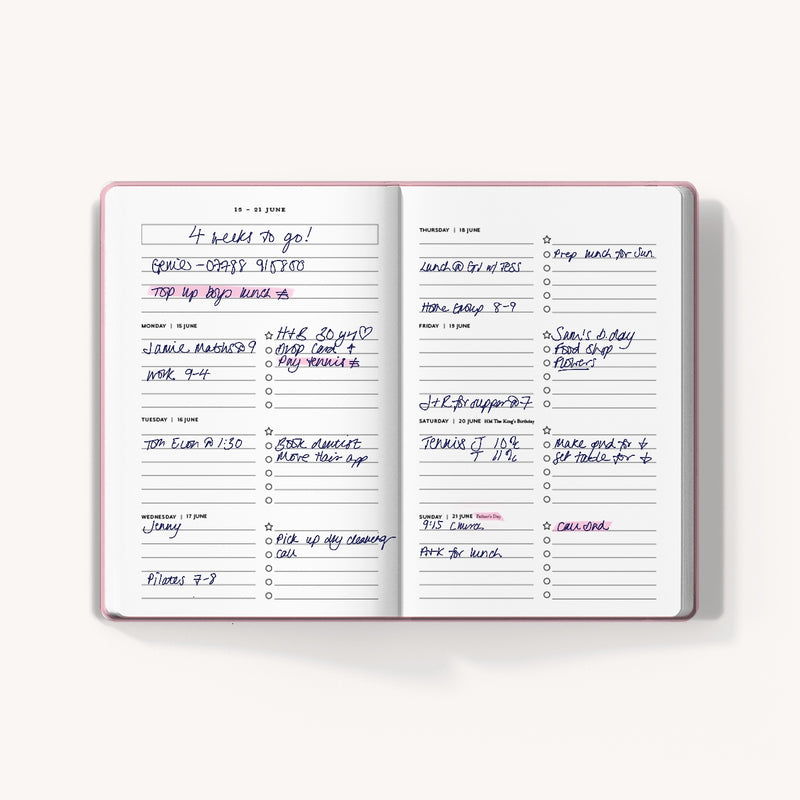 15 – 21 JUNE
4 weeks to go!
Genie - 07788 915800
Top up boys lunch
MONDAY | 15 JUNE
Jamie Maths @ 9
work 9-4
H+B 30 yr ♡
Drop Card
Pay tennis
TUESDAY | 16 JUNE
Tom Econ @ 1:30
Book dentist
Move Hair app
WEDNESDAY | 17 JUNE
Jenny
Pilates 7-8
Pick up dry cleaning
Call
THURSDAY | 18 JUNE
Lunch @ w/ Tess
Home Group 8-9
Prep lunch for Sun
FRIDAY | 19 JUNE
J+R for supper @ 7
Sam's B.day
Food shop
Flowers
SATURDAY | 20 JUNE HM The King's Birthday
Tennis J 10
T 11
Make for
Set table for
SUNDAY | 21 JUNE Father's Day
9:15 Church
A+K for lunch
Call Dad